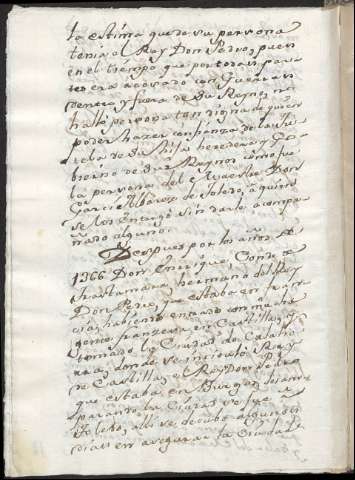 la estima que de su persona
tenia el Rey Don Pedro, pues
en el tiempo que por todas partes
era acosado con Guerras
dentro y fuera de su Reyno, no
halló persona tan digna de quien
poder hazer confianza de la
de su Hija heredera y
de sus Reynos como fue
la persona del Maestre Don
Garcia Albarez de Toledo, a quien
se los entregó sin darle a compa
ñado alguno.
Despues por los años de
1366 Don Enrique, Conde de
trastamara hermano del Rey
Don Pedro, que estaba en fran
cia, habiendo entrado con mucha
gente franzesa en Castilla, y
tomado la Ciudad de Calaho
rra, donde se intituló Rey
de Castilla, el Rey Don Pedro
que estaba en Burgos
la Ciudad se fue a
Toledo, alli se detubo algunos
dias en asegurar la Ciudad